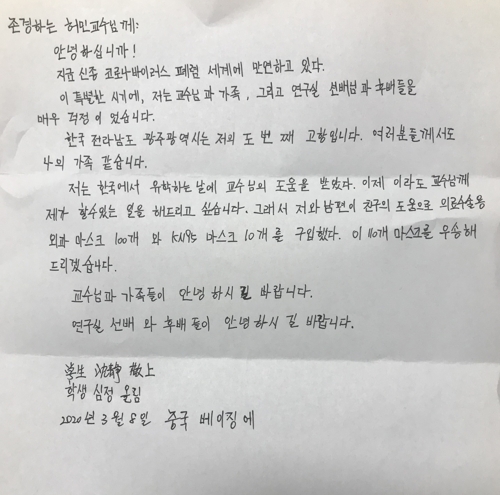 존경하는 허민교수님께:
안녕하십니까!
지금 신종 코로나바이러스 폐렴 세계에 만연하고 있다.
이 특별한 시기에, 저는 교수님과 가족, 그리고 연구실 선배님과 후배들을
매우 걱정이 있었습니다.
한국 전라남도 광주광역시는 저의 두 번 째 고향입니다. 여러분들께서도
나의 가족 같습니다.
저는 한국에서 유학하는 날에 교수님의 도움을 받았다. 이제 이라도 교수님께
제가 할수있는 일을 해드리고 싶습니다. 그래서 저와 남편이 친구의 도움으로 의료수술용
외과 마스크 100개 와 KN95 마스크 10개를 구입했다. 이 110개 마스크를 우송해
드리겠습니다.
교수님과 가족들이 안녕 하시 길 바랍니다.
연구실 선배 와 후배 들이 안녕하시 길 바랍니다.
學生 沈靜 敬上
학생 심정 올림
2020년 3월 8일 중국 베이징 에